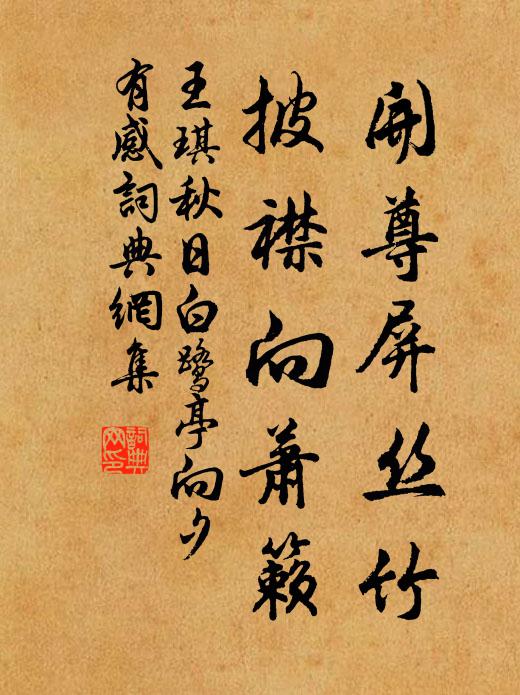 開尊屏丝竹
披襟向蕭籟
王琪秋日白鷺亭向夕
有感詞典網集
詞典
网印